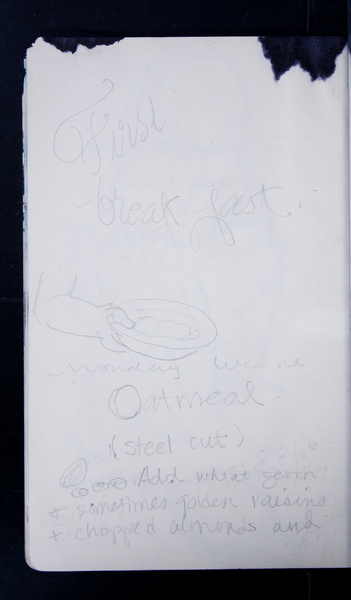 First
break fast.
Monday Wedne
Oatmeal
(steel cut)
Add wheat germ
+ sometimes golden raisins
+ chopped almonds and